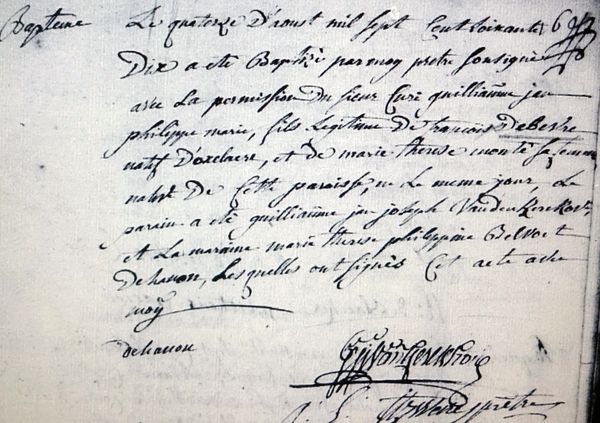 Bapteme
Le quatorze D'aoust mil sept Cent soixante
Dix a eté Baptisé par moy pretre soussigné
avec La permission Du sieur Curé guilliaume jan
philippe marie, fils Legitime De francois Debevre
natif D'oxelaere, et de marie therese monté sa femme
native De Cette paroisse, ne Le meme jour, Le
parain a eté guilliaume jan joseph Vandenkerckove
et La maraine marie therese philippine Belvoet
Dehauon, Lesquelles ont signés Cet acte avec
moy
dehauon
pretre